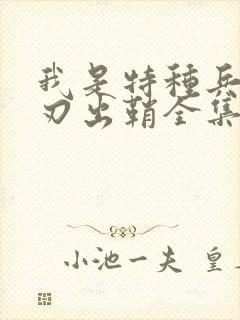 我是特種兵
刃出鞘全集
小池一夫 皇